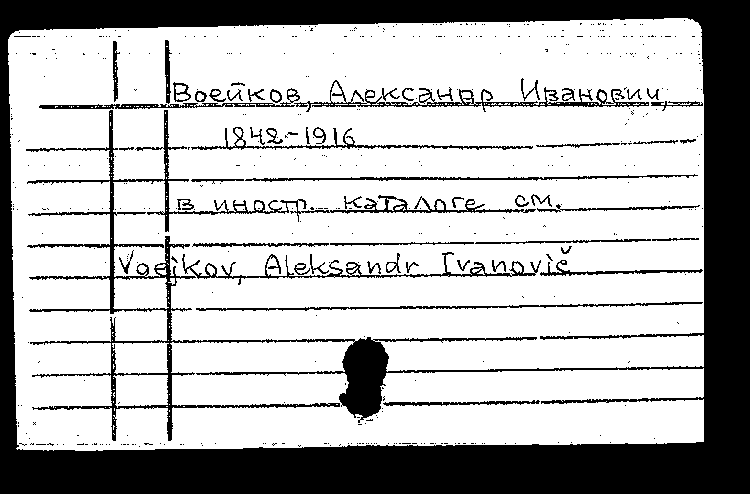 Воейков, Александр Иванович,
1842-1916
в иностр. каталоге см.
Voejkov, Aleksandr Ivanovič